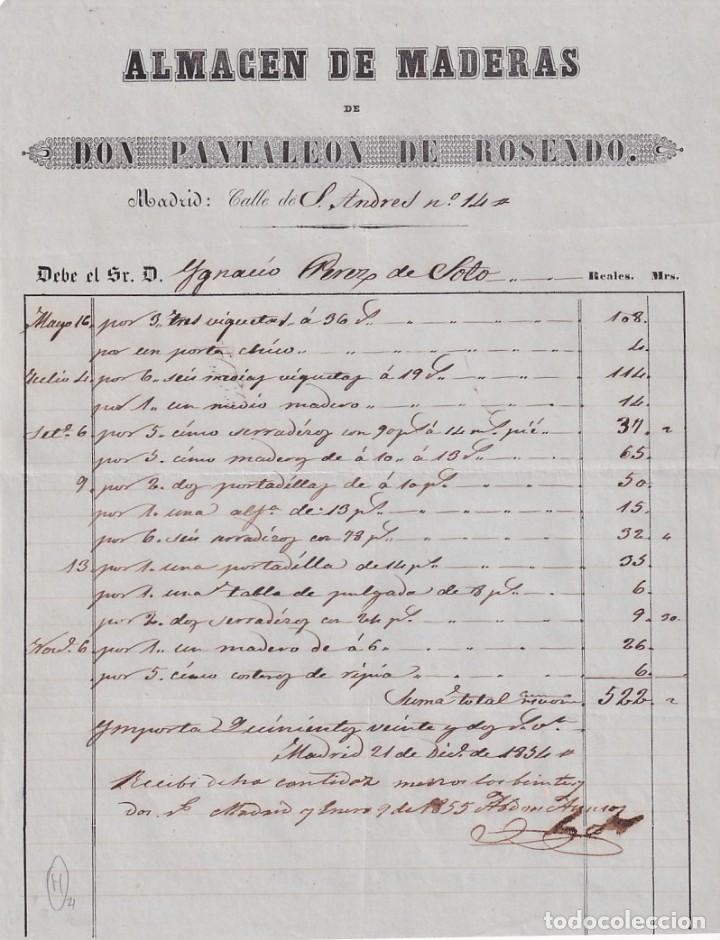 ALMACEN DE MADERAS
DE
DON PANTALEON DE ROSENDO.
Madrid: Calle de S. Andres nº 14
Debe el Sr. D. Ygnacio Perez de Soto Reales. Mrs.
Mayo 16. por 3. tres viguetas á 36 108.
por un porta chico 4.
Julio 4. por 6. seis medias viguetas á 19 114.
por 1. un medio madero 14.
Set.e 6. por 5. cinco serradizos con 90 p.s á 14 m.s pié 37. 2
por 5. cinco maderos de á 10 á 13 65.
9. por 2. dos portadillas de á 10 p.s 50.
por 1. una de 13 p.s 15.
por 6. seis con 78 p.s 32. 4
13. por 1. una portadilla de 14 p.s 35.
por 1. una tabla de pulgada de 8 p.s 6.
por 2. dos serradizos con 24 p.s 9. 30.
Nov.e 6. por 1. un madero de á 6 26.
por 5. cinco costeros de ripia 6.
Suma total 522. 2
Ymporta Quinientos veinte y dos
Madrid 21 de Dic.e de 1854
Recibi dicha cantidad menos los beinte y
dos Madrid y Enero 9 de 1855
H
21
todocoleccion